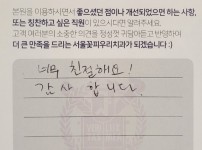 본원을 이용하시면서 좋으셨던 점이나 개선되었으면 하는 사항,
또는 칭찬하고 싶은 직원이 있으시다면 알려주세요.
고객 여러분의 소중한 의견을 정성껏 귀담아듣고 반영하여
더 큰 만족을 드리는 서울꽃피우리치과가 되겠습니다 :)
너무 친절해요!
감사 합니다